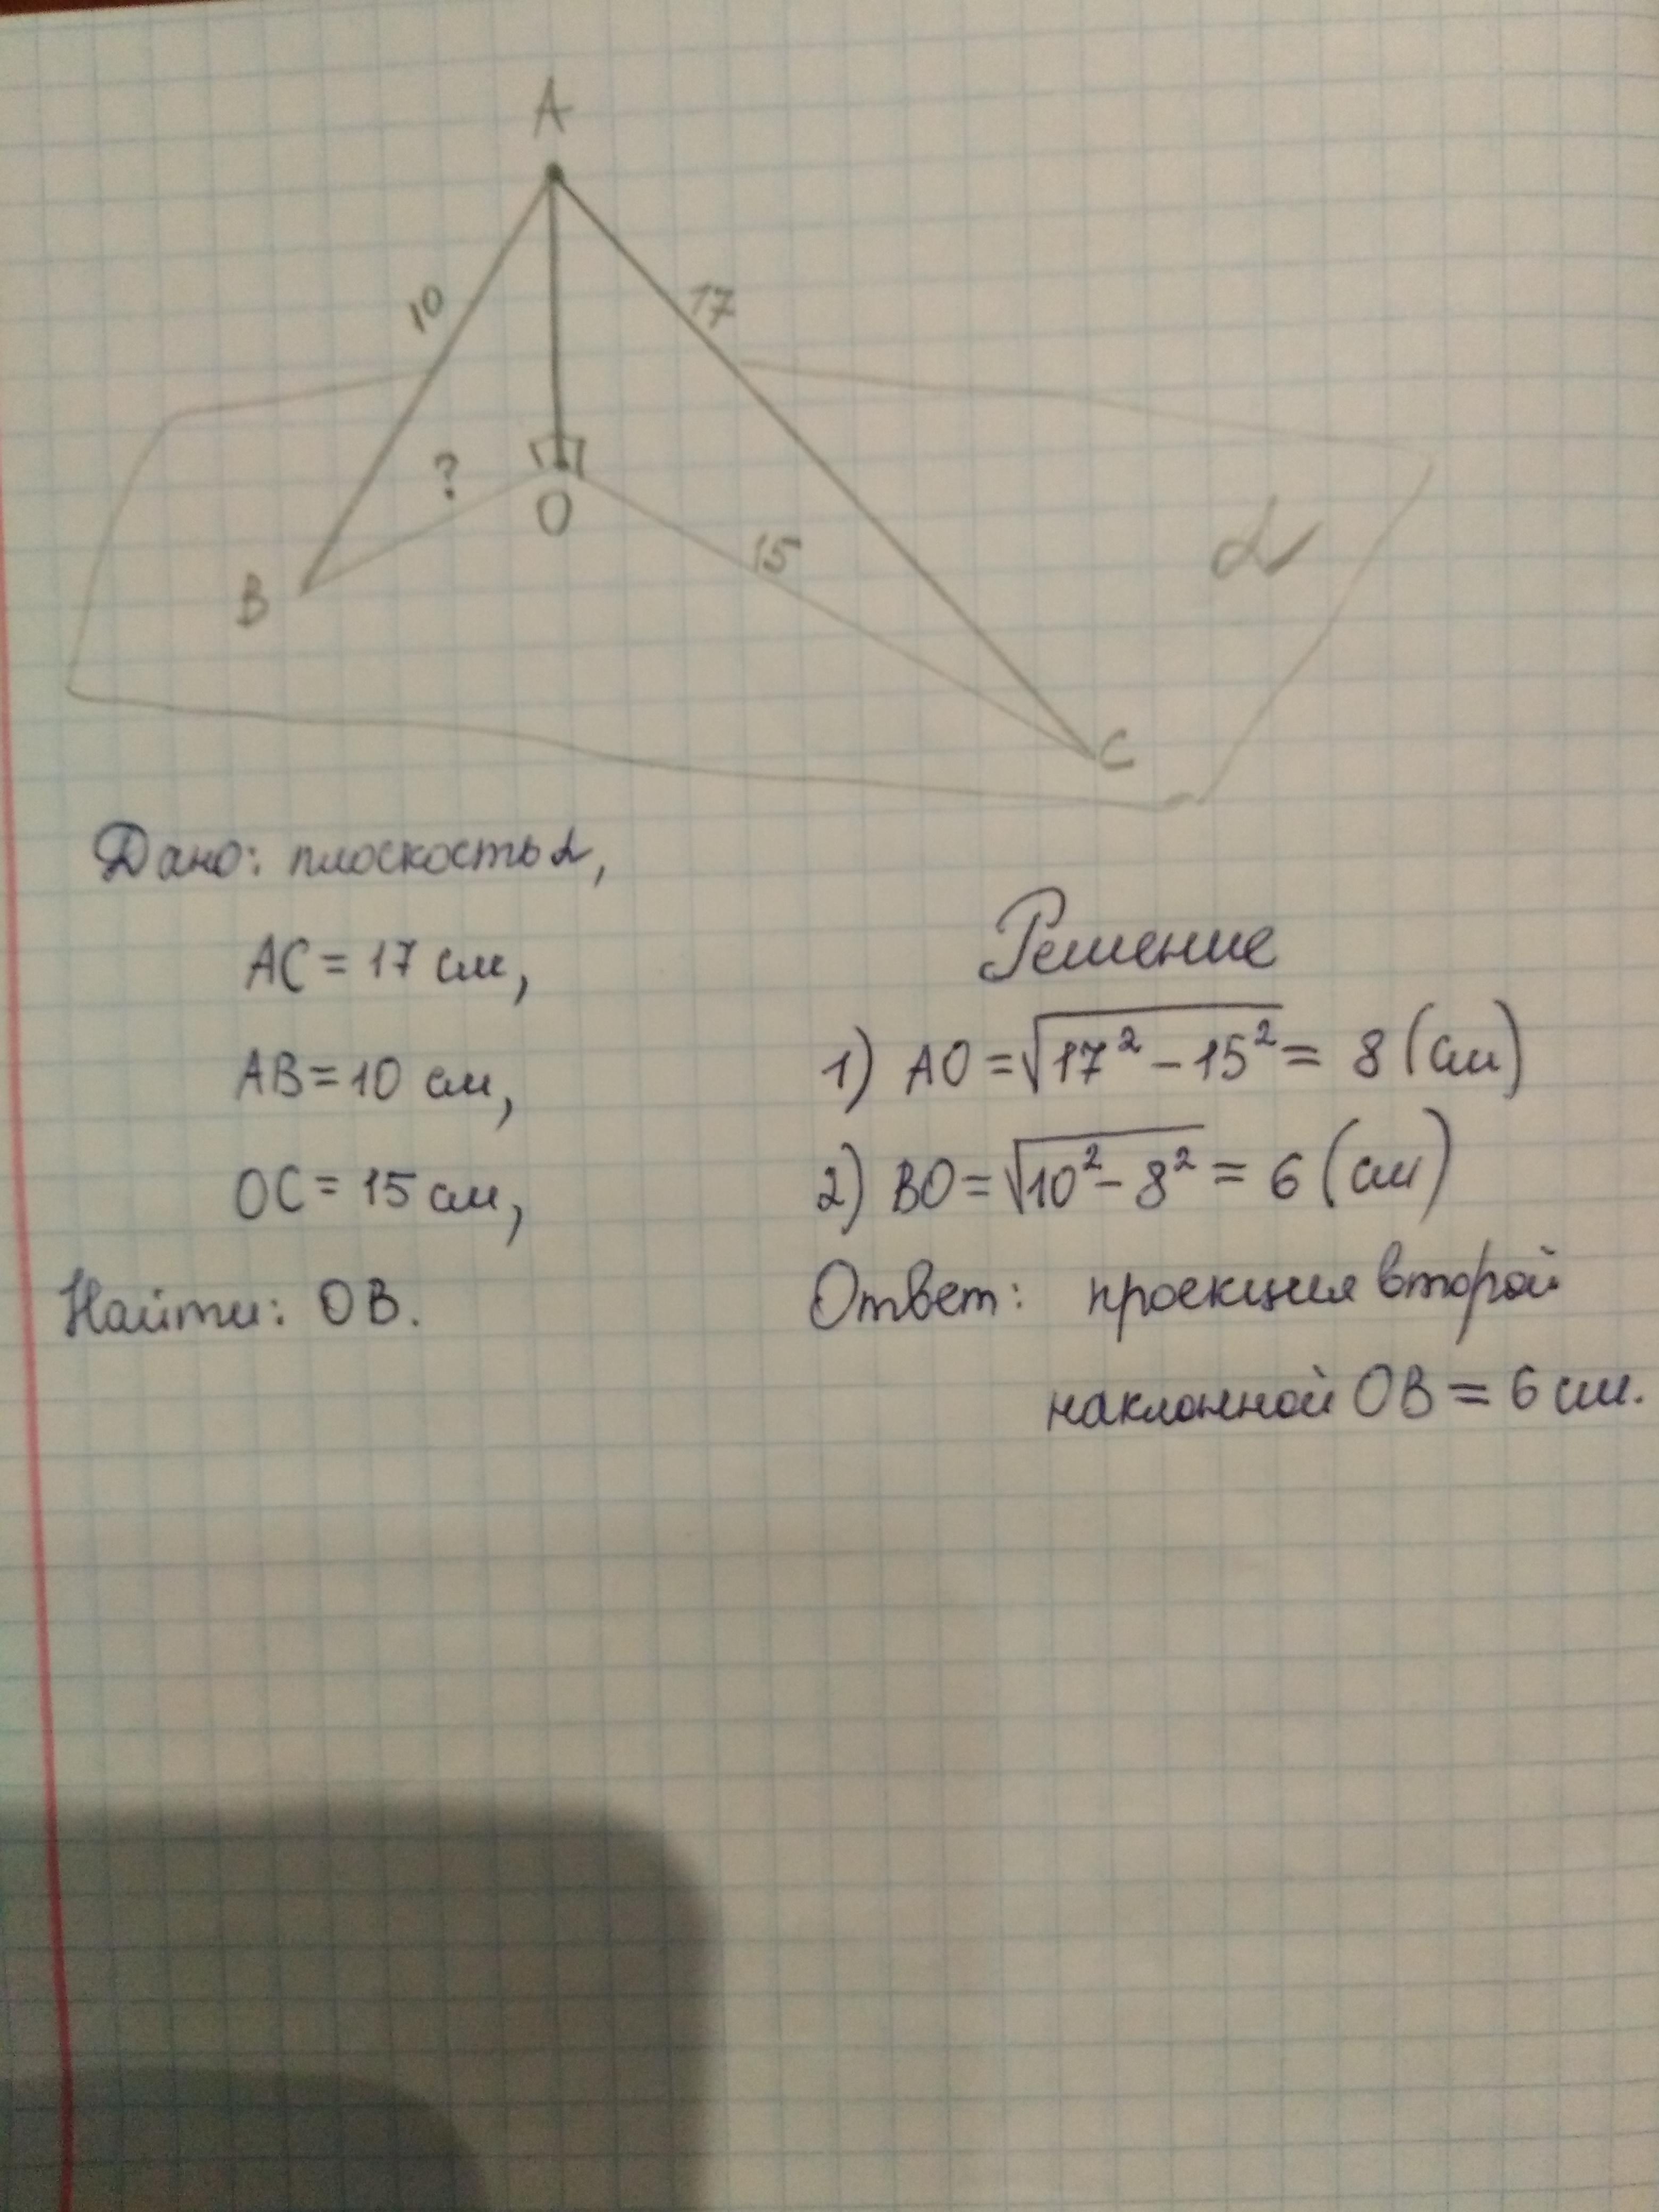 A
10
17
?
O
15
B
α
C
Дано: плоскость α,
AC = 17 см,
AB = 10 см,
OC = 15 см,
Найти: OB.
Решение
1) AO = √17² − 15² = 8 (см)
2) BO = √10² − 8² = 6 (см)
Ответ: проекция второй
наклонной OB = 6 см.